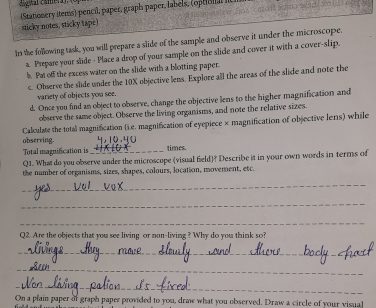 digital camera),
(Stationery items) pencil, paper, graph paper, labels, (optional
sticky notes, sticky tape)
In the following task, you will prepare a slide of the sample and observe it under the microscope.
a. Prepare your slide - Place a drop of your sample on the slide and cover it with a cover-slip.
b. Pat off the excess water on the slide with a blotting paper.
c. Observe the slide under the 10X objective lens. Explore all the areas of the slide and note the
variety of objects you see.
d. Once you find an object to observe, change the objective lens to the higher magnification and
observe the same object. Observe the living organisms, and note the relative sizes.
Calculate the total magnification (i.e. magnification of eyepiece × magnification of objective lens) while
observing. 4,10,40
Total magnification is times.
Q1. What do you observe under the microscope (visual field)? Describe it in your own words in terms of
the number of organisms, sizes, shapes, colours, location, movement, etc.
yes vol vox
Q2. Are the objects that you see living or non-living? Why do you think so?
livings they move slowly and there body chart
seen
Non living pation is fixed
On a plain paper or graph paper provided to you, draw what you observed. Draw a circle of your visual